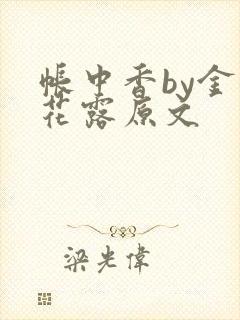 帐中香by金
花露原文
梁光伟